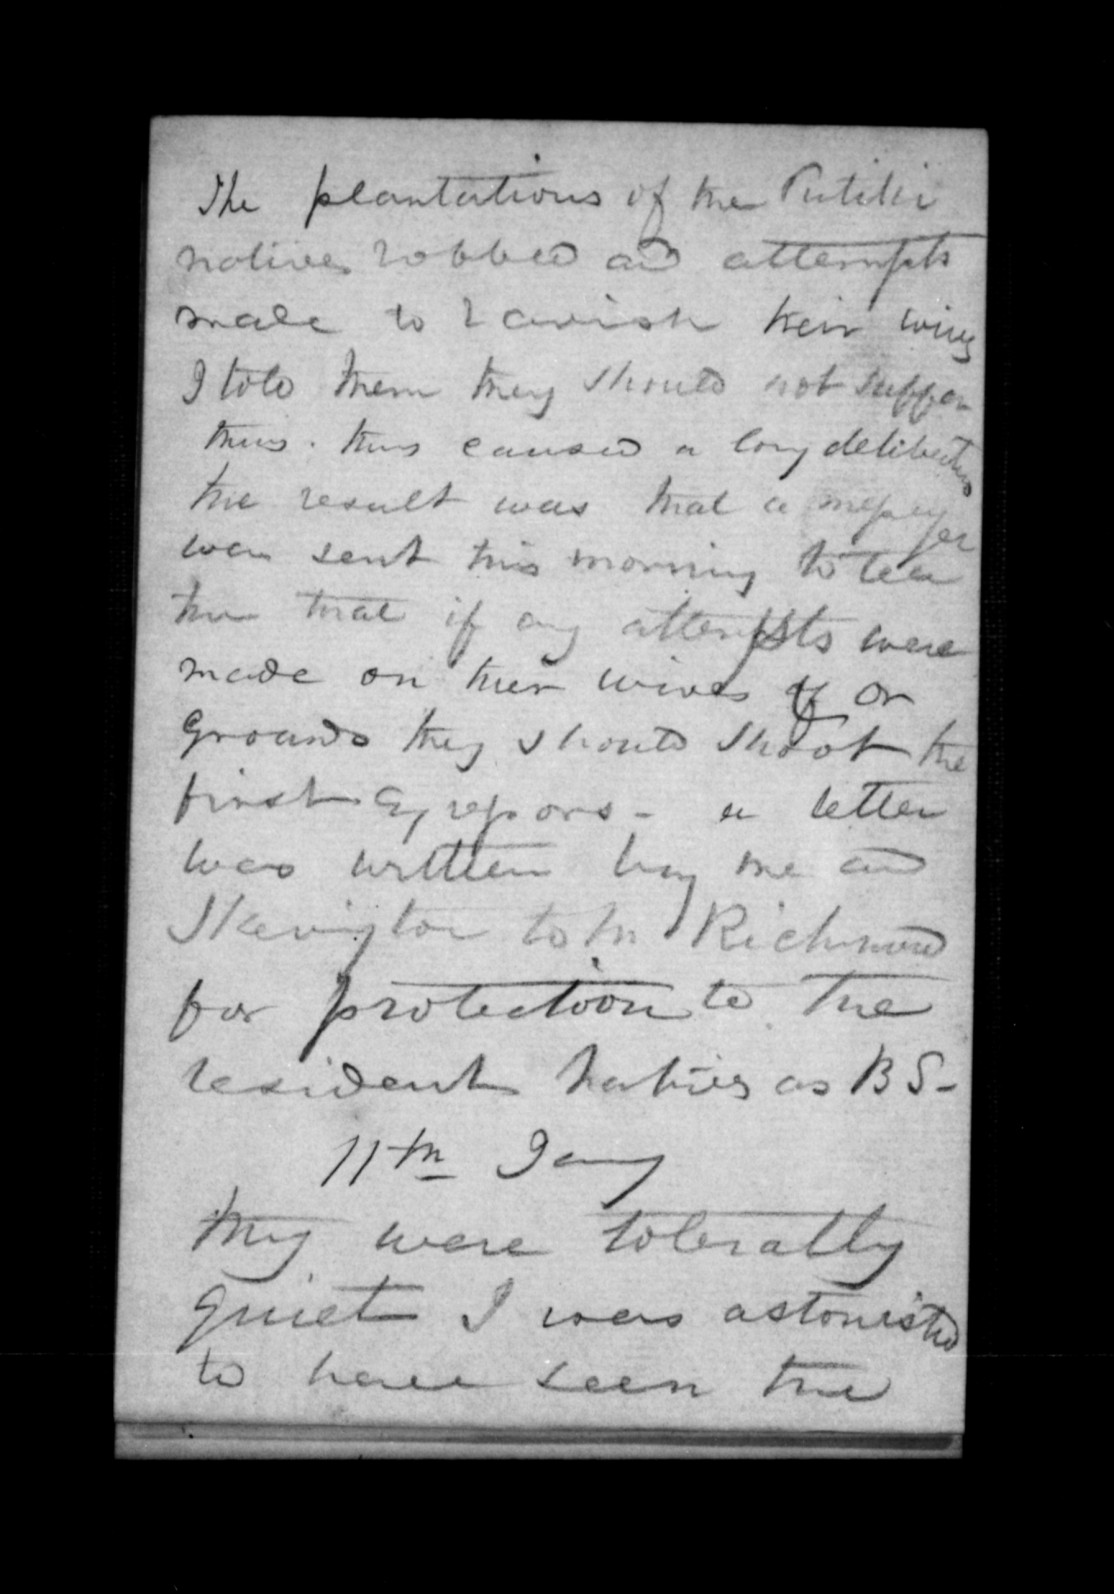 The plantations of the Putiki
natives robbed and attempts
made to ravish their wives
I told them they should not suffer
this. this caused a long deliberation
the result was that a messenger
was sent this morning to tell
them that if any attempts were
made on their wives of or
grounds they should shoot the
first aggressors - a letter
was written by me and
Skevington to Mr Richmond
for protection to the
resident natives as BS-
11th Jany
They were tolerably
quiet I was astonished
to have seen the